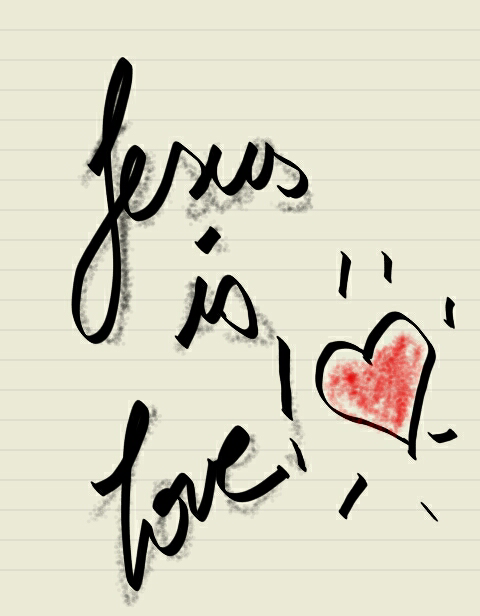 Jesus
is
love!